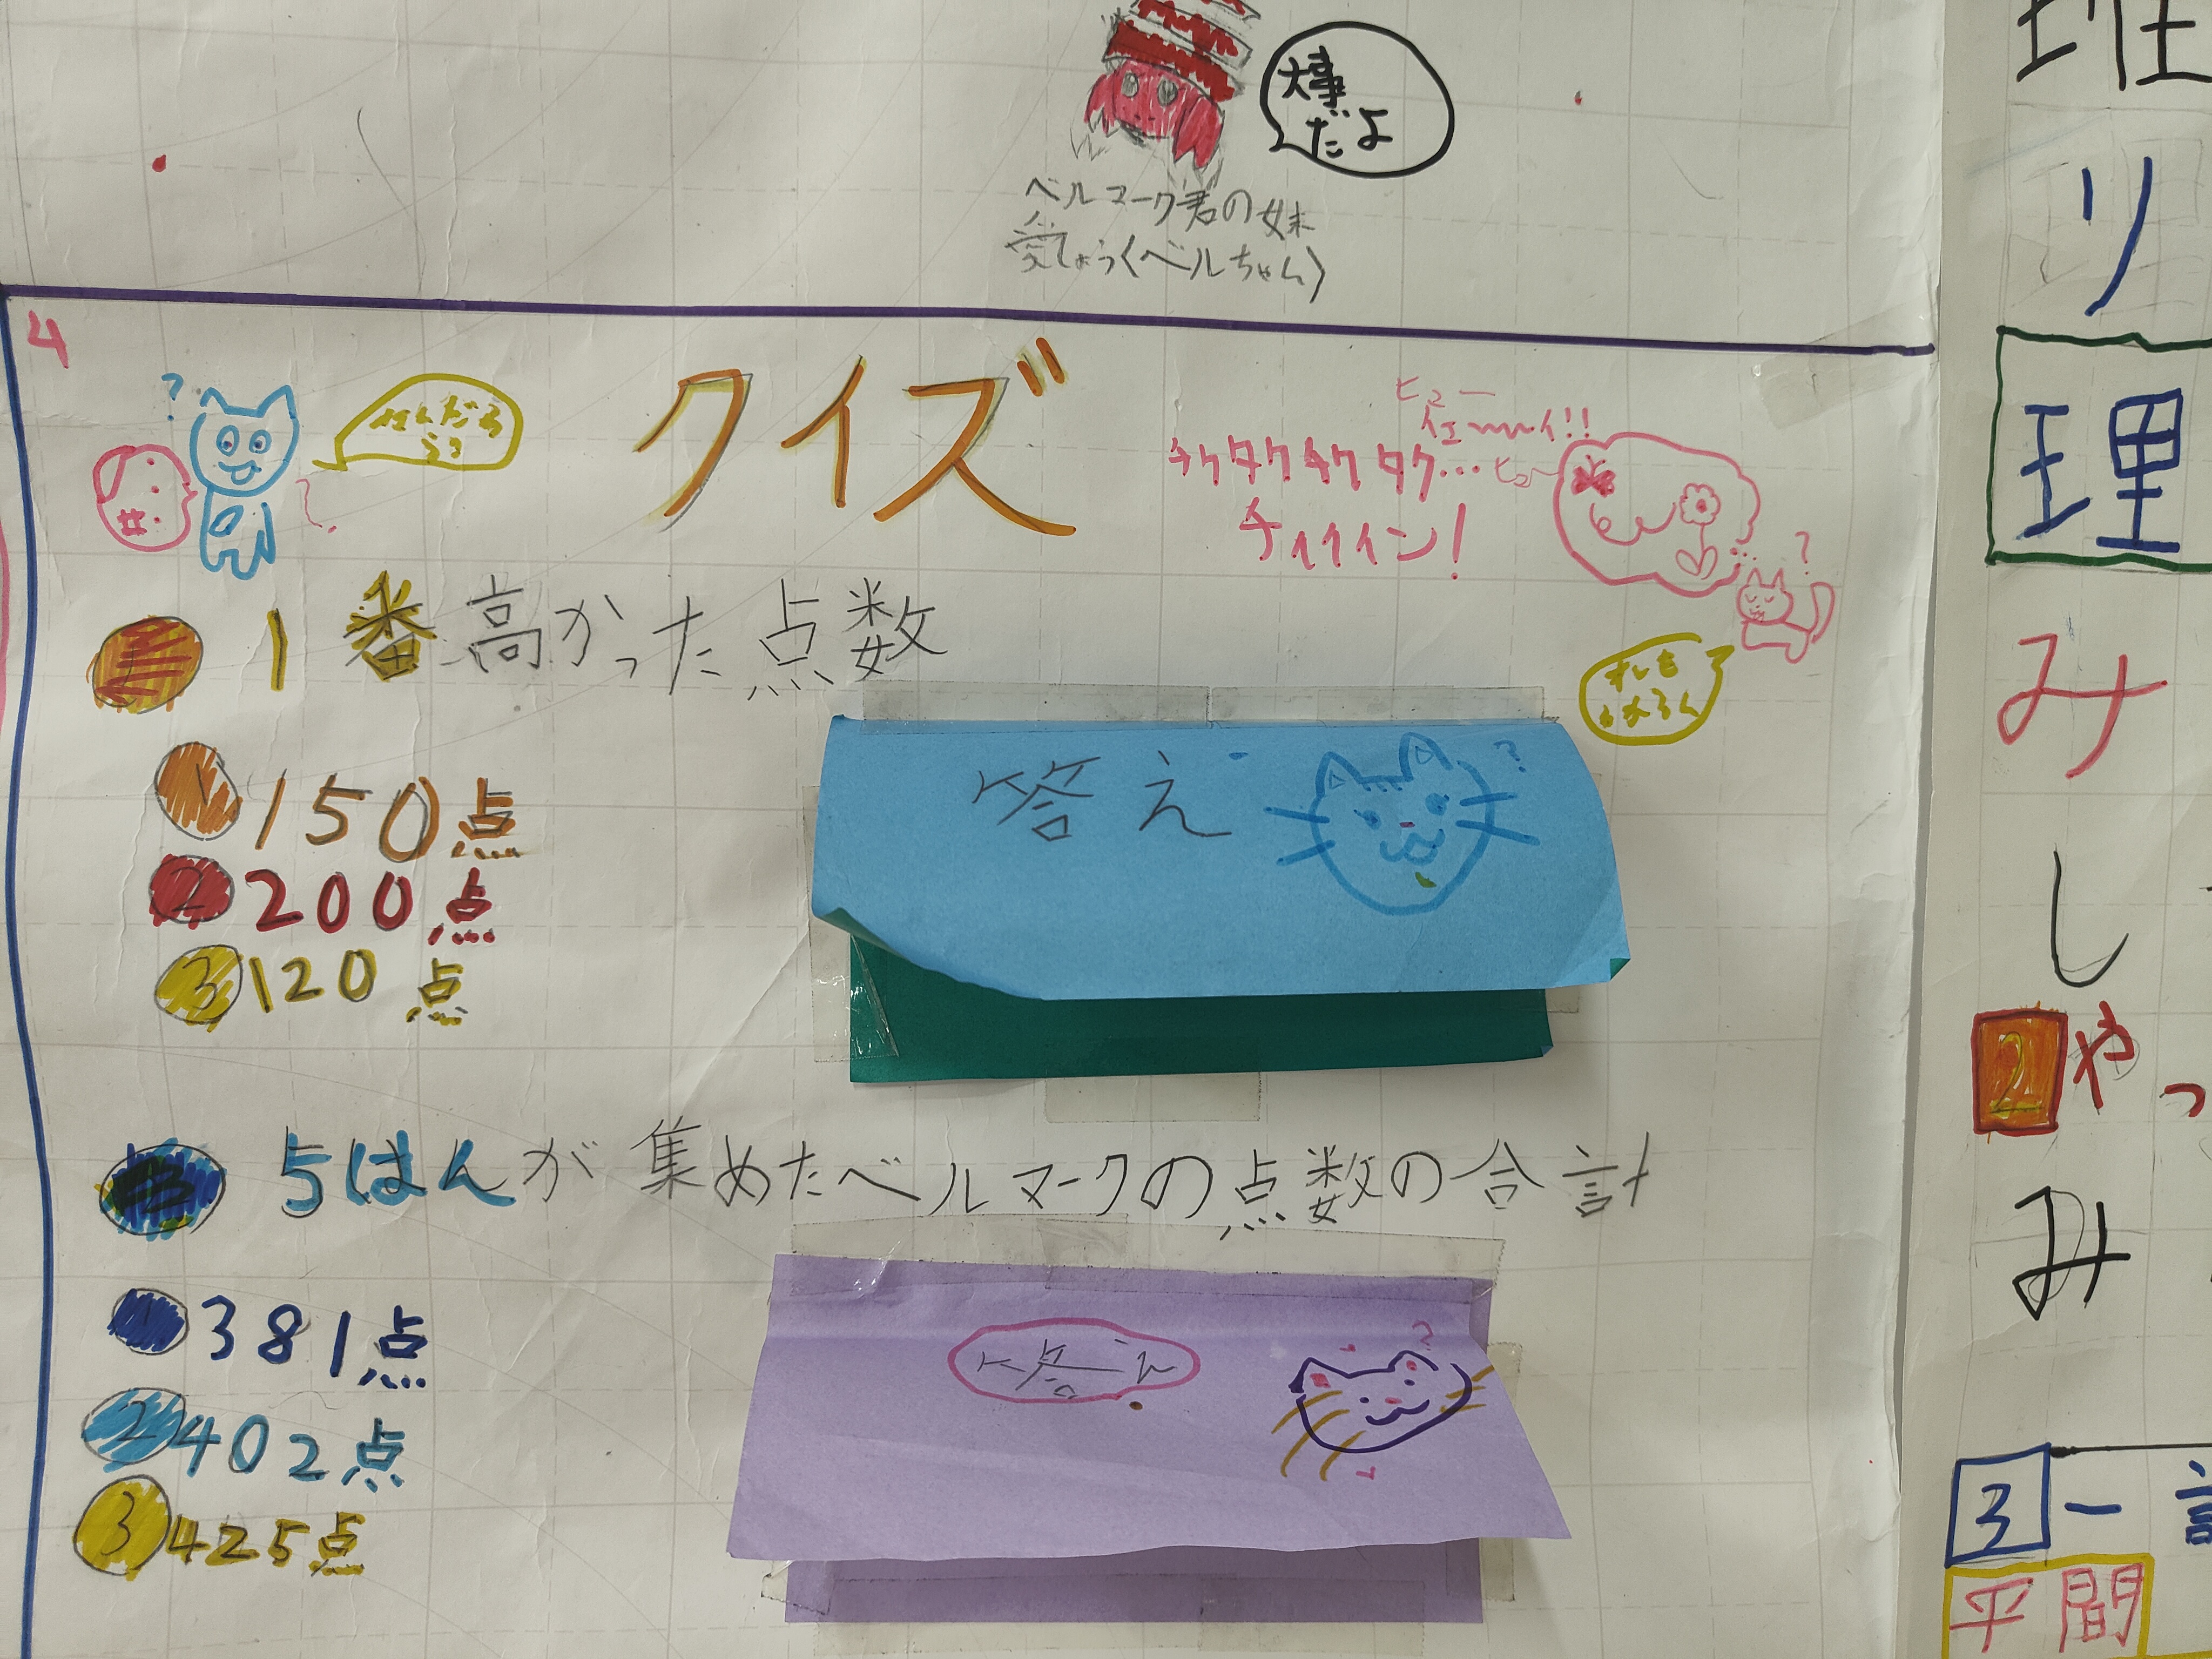 大事
だよ
ベルマーク君の妹
愛しょう〈ベルちゃん〉
4
クイズ
?
なんだろ
う?
ヒュー
イエーーイ!!
チクタクチクタク…
ヒュー
チィイイン!
?
1番高かった点数
1 150点
2 200点
3 120点
答え
?
5はんが集めたベルマークの点数の合計
1 381点
2 402点
3 425点
答え
?
リ
理
み
し
2 や
っ
み
3 一
平間